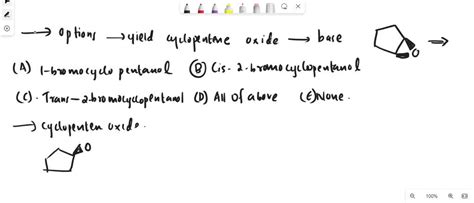 → options → yield cyclopentane oxide → base
O →
(A) 1-bromocyclo pentanol (B) Cis-2-bromocyclopentanol
(C). Trans-2-bromocyclopentanol (D) All of above (E) None.
→ cyclopenten oxide.
O
100%